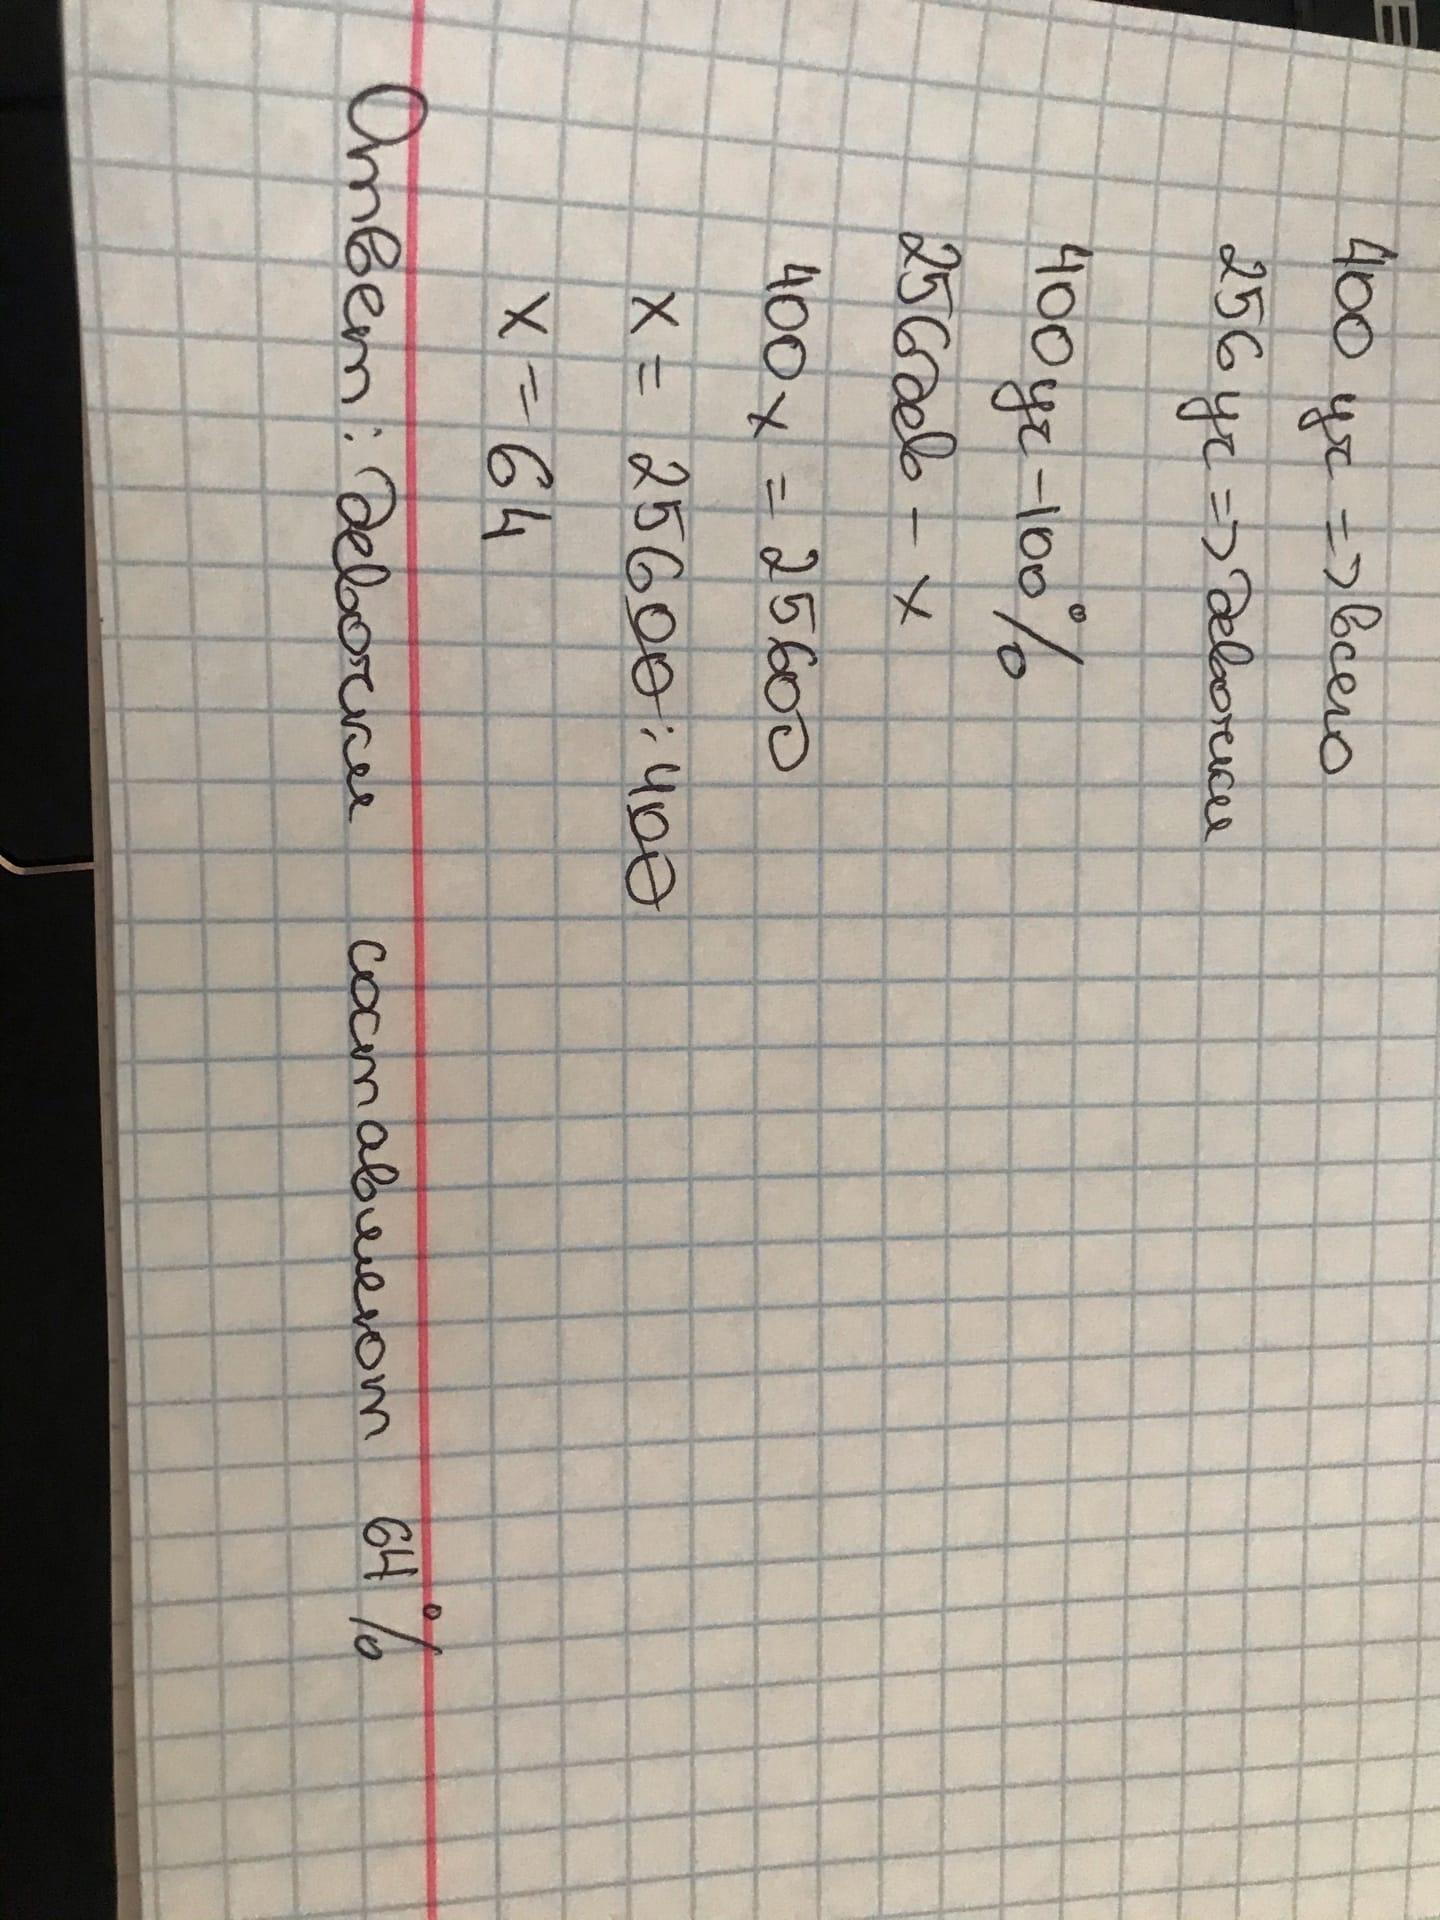 400 уч => всего
256 уч => девочки
400 уч - 100%
256 дев - x
400 x = 25600
x = 25600 : 400
x = 64
Ответ: девочки составляют 64%